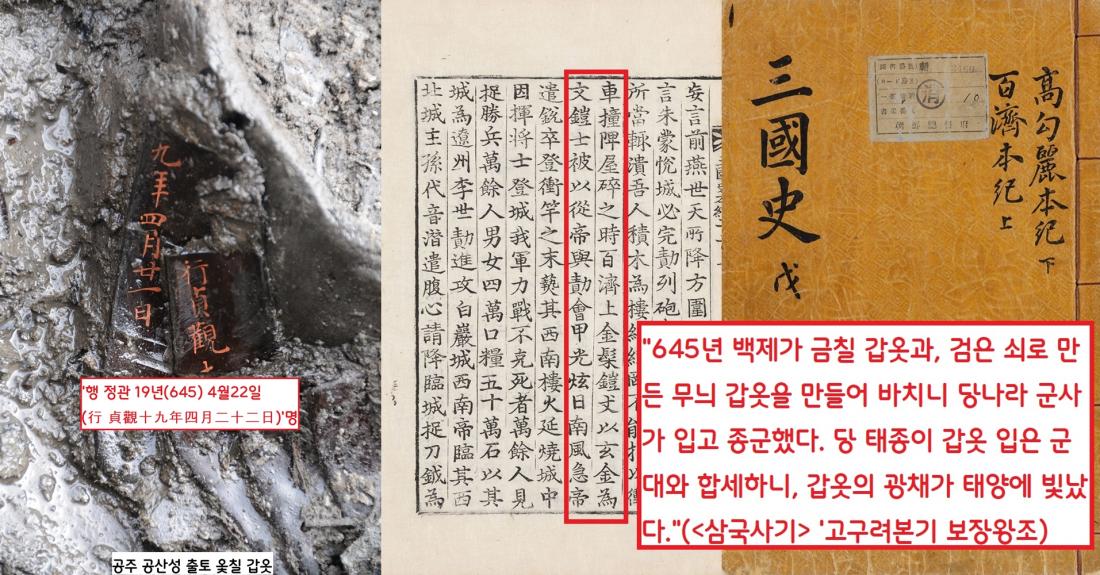 九年四月廿一日
行貞觀
'행 정관 19년(645) 4월22일
(行 貞觀十九年四月二十二日)'명
공주 공산성 출토 옻칠 갑옷
妄言前燕世天所降方圍
言朱蒙悅城必完勣列砲
所當輒潰吾人積木爲樓
車撞陴屋碎之時百濟上金髹鎧文以玄金爲
文鎧士被以從帝與勣會甲光炫日南風急帝
遣銳卒登衝竿之末爇其西南樓火延燒城中
因揮將士登城我軍力戰不克死者萬餘人見
捉勝兵萬餘人男女四萬口糧五十萬石以其
城爲遼州李世勣進攻白巖城西南帝臨其西
北城主孫代音潛遣腹心請降臨城投刀鉞爲
高勾麗本紀 下
百濟本紀 上
三國史 戊
"645년 백제가 금칠 갑옷과, 검은 쇠로 만
든 무늬 갑옷을 만들어 바치니 당나라 군사
가 입고 종군했다. 당 태종이 갑옷 입은 군
대와 합세하니, 갑옷의 광채가 태양에 빛났
다."(<삼국사기> '고구려본기 보장왕조)